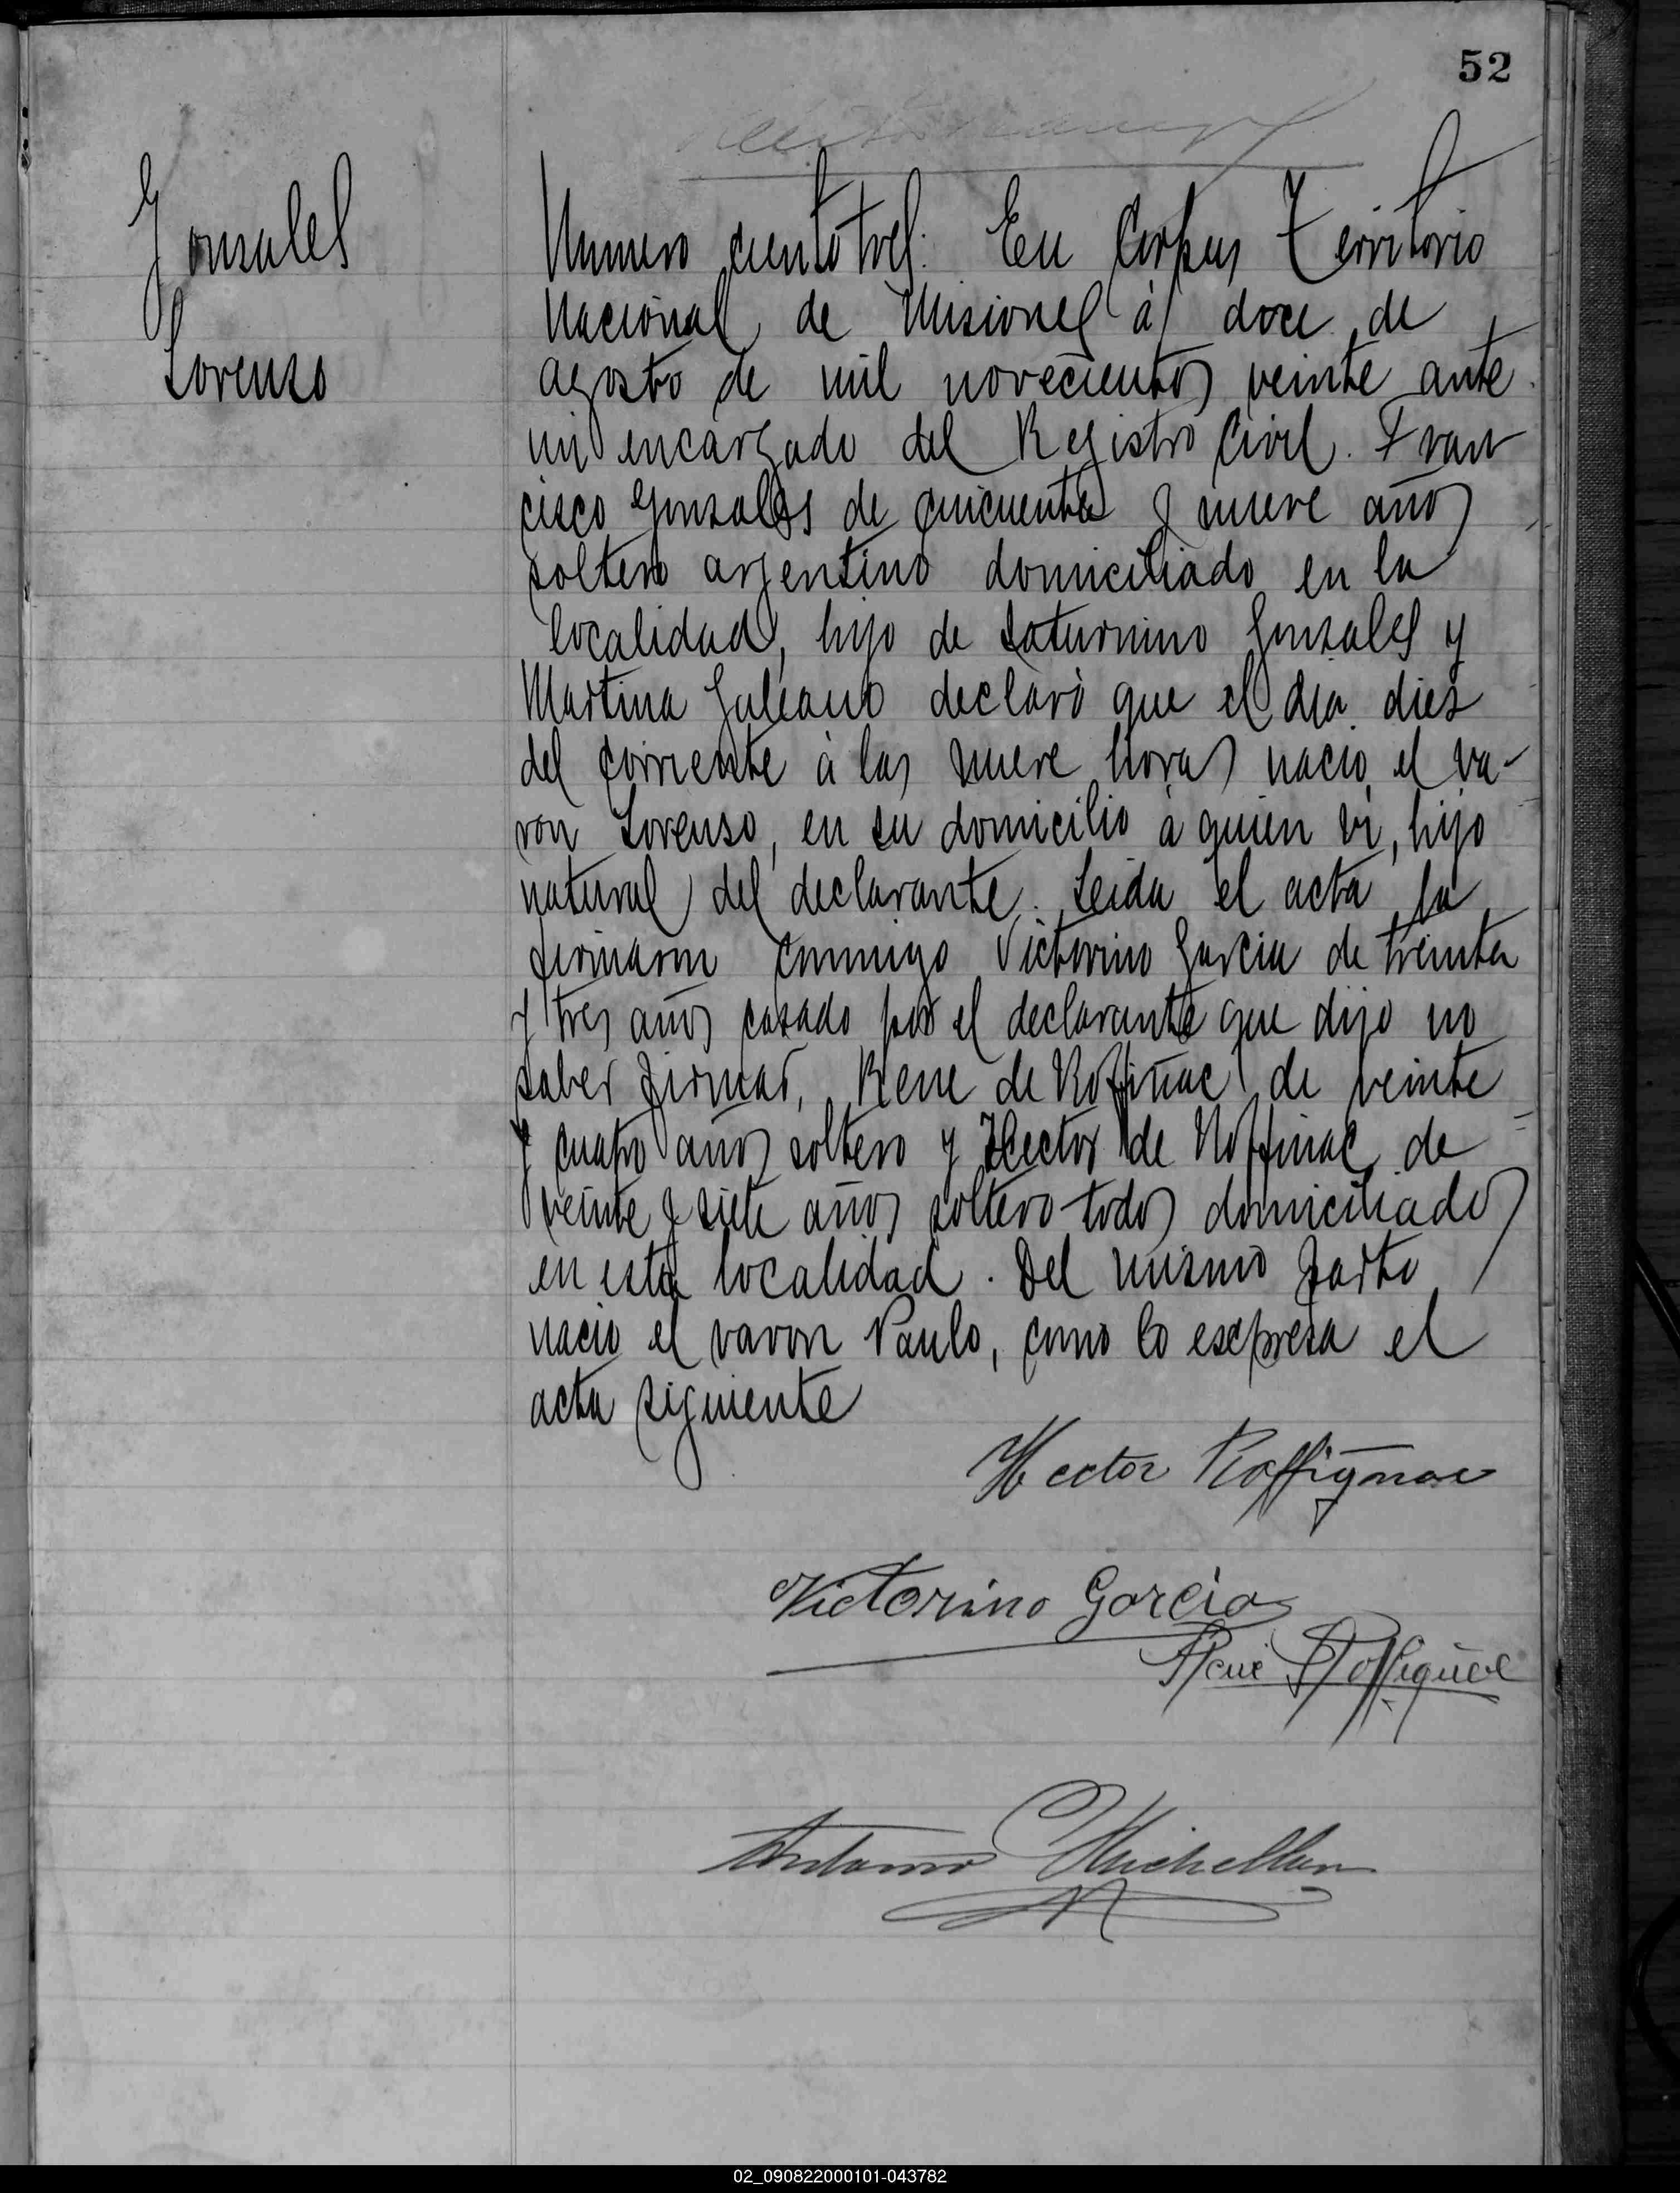 52
Gonsales
Lorenso
Numero ciento tres: En Corpus Territorio
Nacional de Misiones á doce de
agosto de mil novecientos veinte ante
mi encargado del Registro Civil. Fran
cisco Gonsales de cincuenta y nueve años
soltero argentino domiciliado en la
localidad, hijo de Saturnino Gonsales y
Martina Galeano declaró que el dia dies
del corriente á las nueve horas nacio el va-
ron Lorenso, en su domicilio á quien vi, hijo
natural del declarante. Leida el acta la
firmaron conmigo Victorino Garcia de treinta
y tres años casado por el declarante que dijo no
saber firmar, Rene de Roffiñac de veinte
y cuatro años soltero y Hector de Roffinac de
veinte y siete años soltero todos domiciliados
en esta localidad. Del mismo parto
nacio el varon Paulo, como lo esepresa el
acta siguiente
Hector Roffignac
Victorino Garcia
René Roffignac
Antonio Michellon
02_090822000101-043782